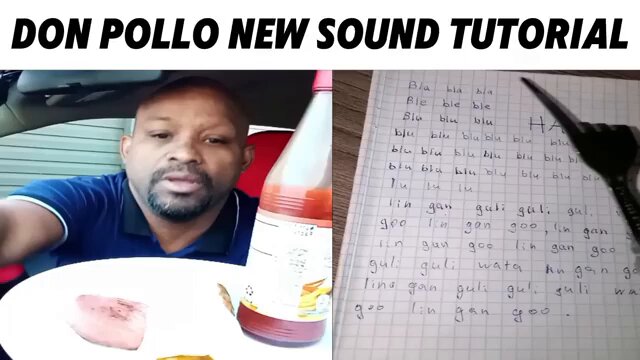 DON POLLO NEW SOUND TUTORIAL
Bla bla bla
Ble ble ble
Blu blu blu
HA
blu blu blu blu blu blu
blu blu blu blu blu blu
blu blu blu blu blu blu
lu lu lu
lin gan guli guli gul
goo lin gan goo, lin gan
lin gan goo lin gan goo
guli guli wata lin gan go
line gan guli guli guli wa
goo lin gan goo.